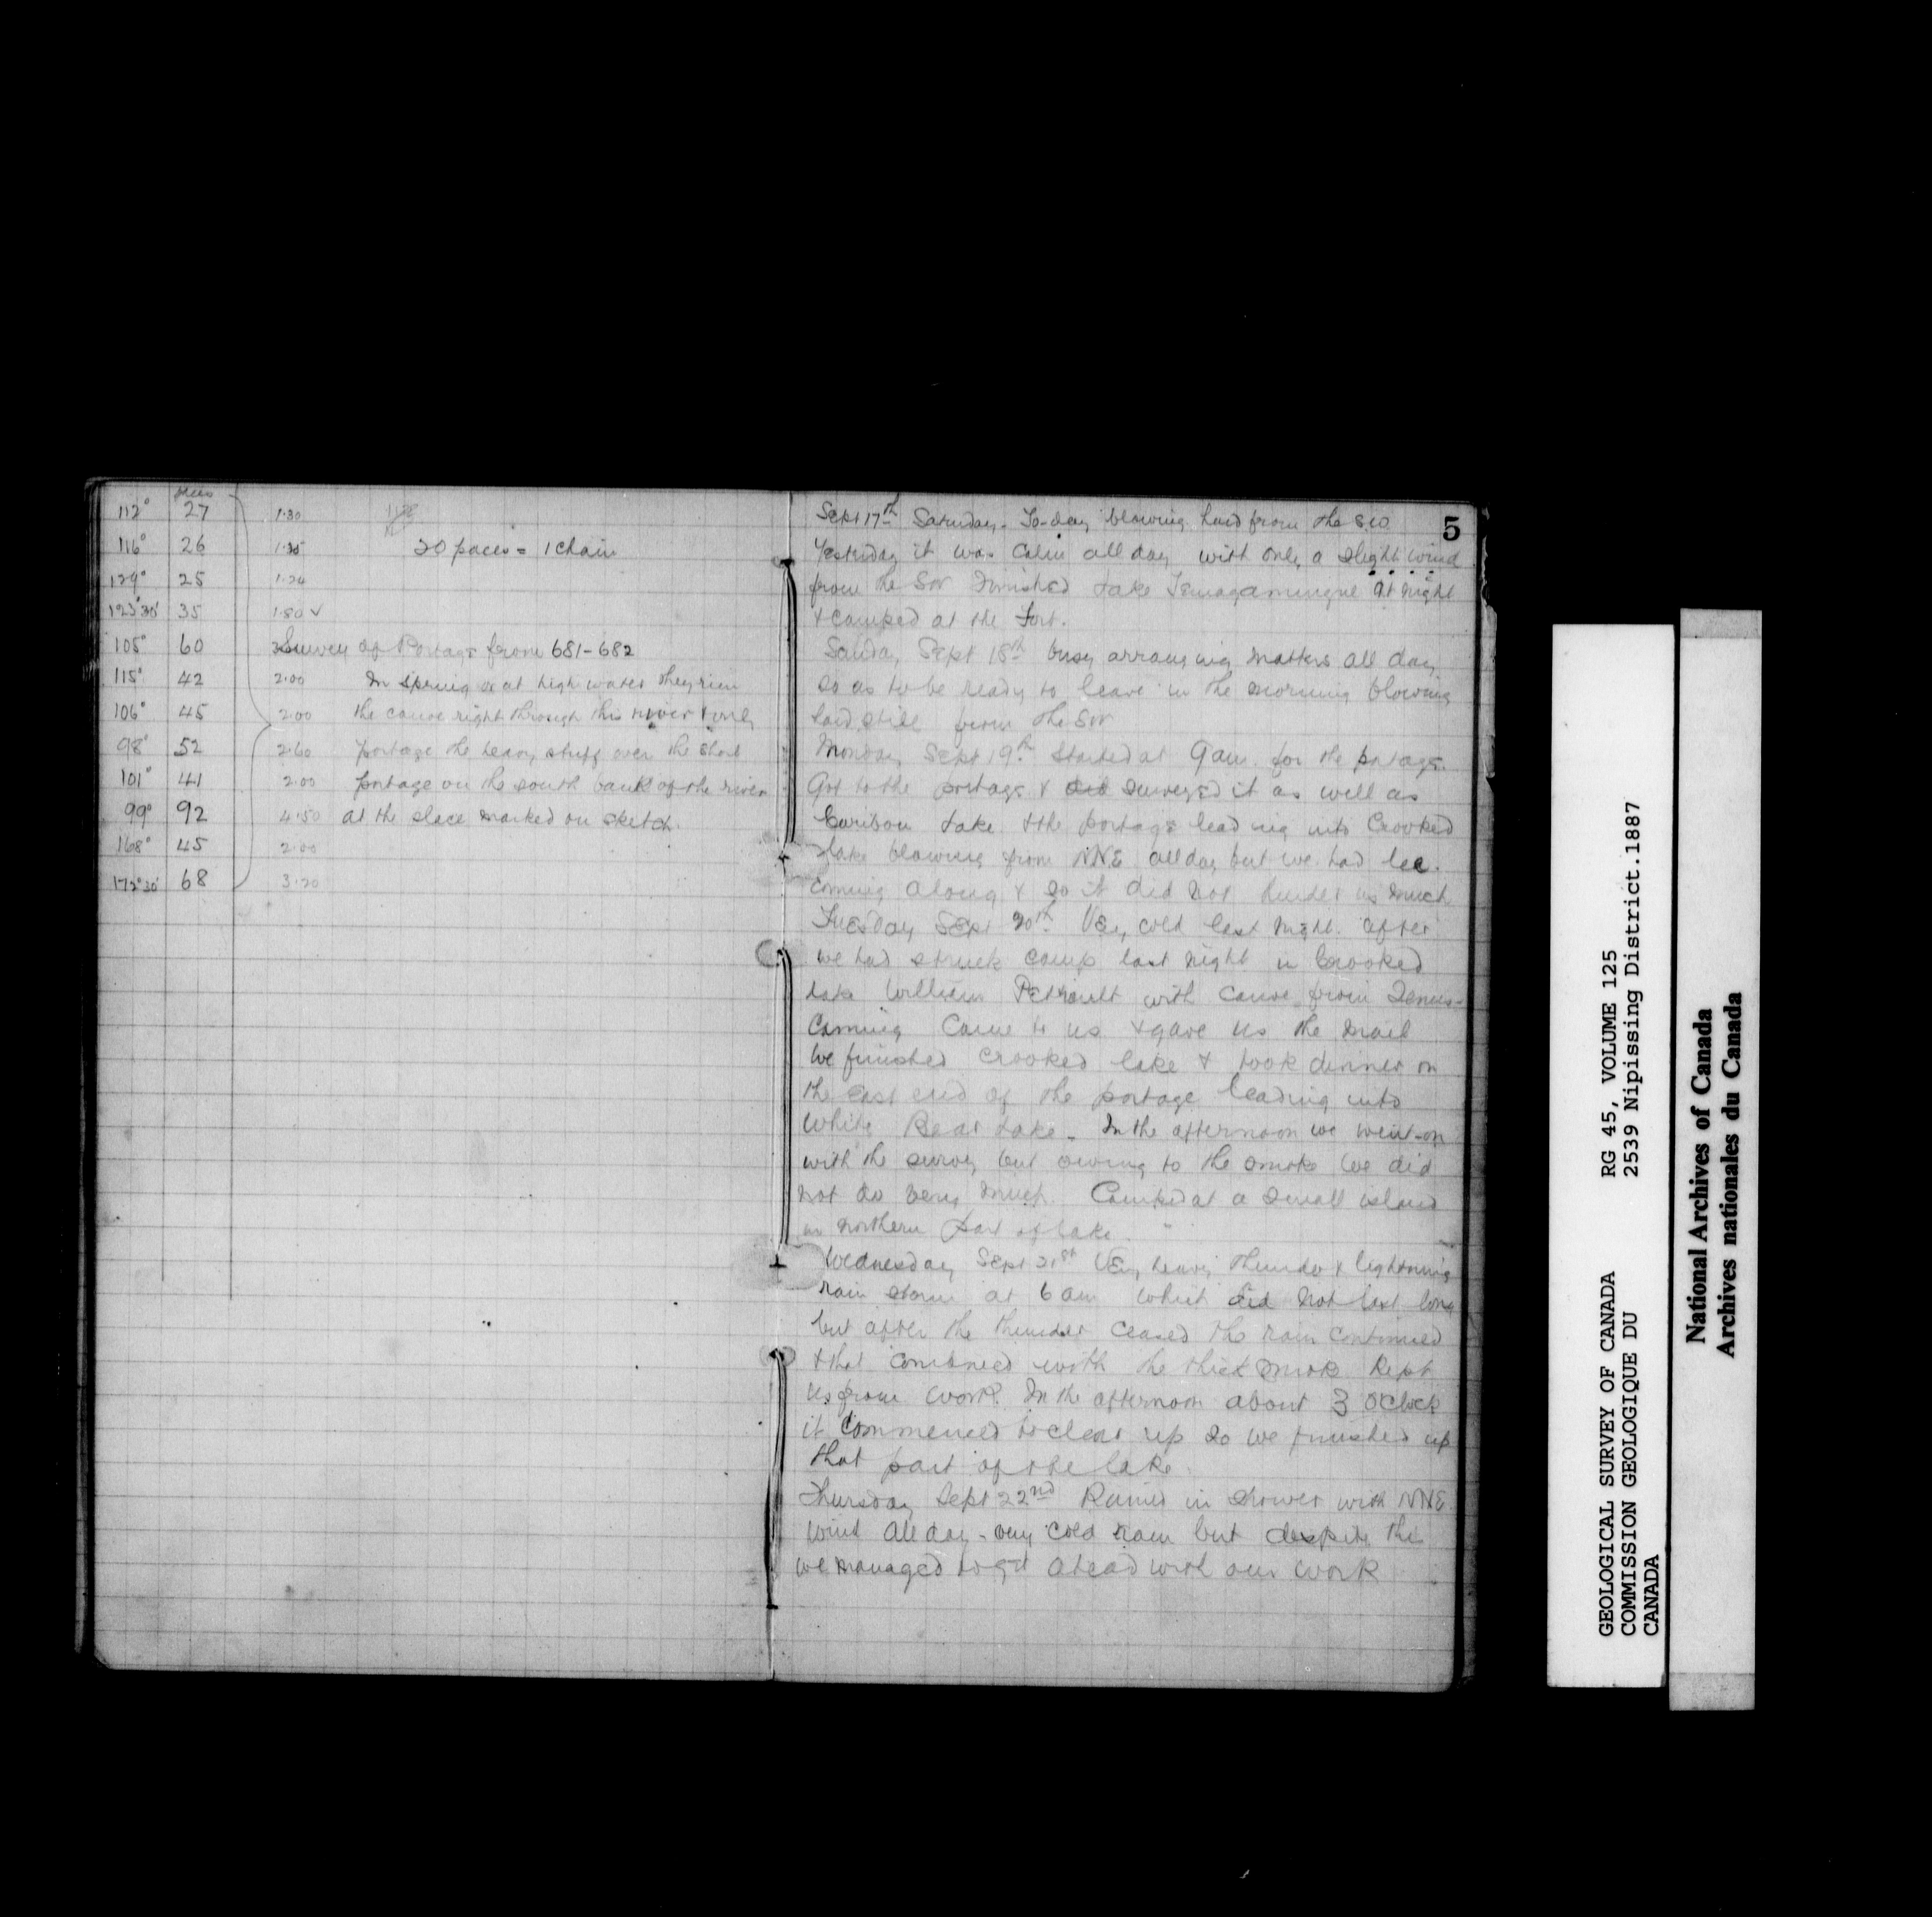 paces
112° 27 1.30
116° 26 1.35 20 paces = 1 chain
129° 25 1.20
123°30' 35 1.80 ✓
105° 60 Survey of Portage from 681-682
115° 42 2.00 In Spring or at high water they run
106° 45 2.00 the canoe right through this river & only
98° 52 2.60 portage the heavy stuff over the short
101° 41 2.00 portage on the south bank of the river
99° 92 4.50 at the place marked on sketch.
168° 45 2.00
172°30' 68 3.20
5
Sept 17th Saturday. To-day blowing hard from the SW
Yesterday it was calm all day with only a slight wind
from the SW finished Lake Temagamingue at night
& camped at the Fort.
Sunday Sept 18th busy arranging matters all day
so as to be ready to leave in the morning blowing
hard still from the SW
Monday Sept 19th Started at 9 am. for the portage.
Got to the portage & did surveyed it as well as
Caribou Lake & the portage leading into Crooked
Lake blowing from NNE all day but we had lee.
coming along & so it did not hinder us much
Tuesday Sept 20th Very cold last night. after
we had struck camp last night in Crooked
Lake William Petrault with canoe from Temis-
caming came to us & gave us the mail
We finished Crooked lake & took dinner on
the east end of the portage leading into
White Bear Lake - In the afternoon we went on
with the survey but owing to the smoke we did
not do very much. Camped at a small island
in northern part of lake.
Wednesday Sept 21st Very heavy thunder & lightning
rain storm at 6 am which did not last long
but after the thunder ceased the rain continued
& that combined with the thick smoke kept
us from work. In the afternoon about 3 o'clock
it commenced to clear up so we finished up
that part of the lake.
Thursday Sept 22nd Rained in shower with NNE
wind all day - very cold rain but despite this
we managed to get ahead with our work
GEOLOGICAL SURVEY OF CANADA RG 45, VOLUME 125
COMMISSION GEOLOGIQUE DU 2539 Nipissing District.1887
CANADA
National Archives of Canada
Archives nationales du Canada